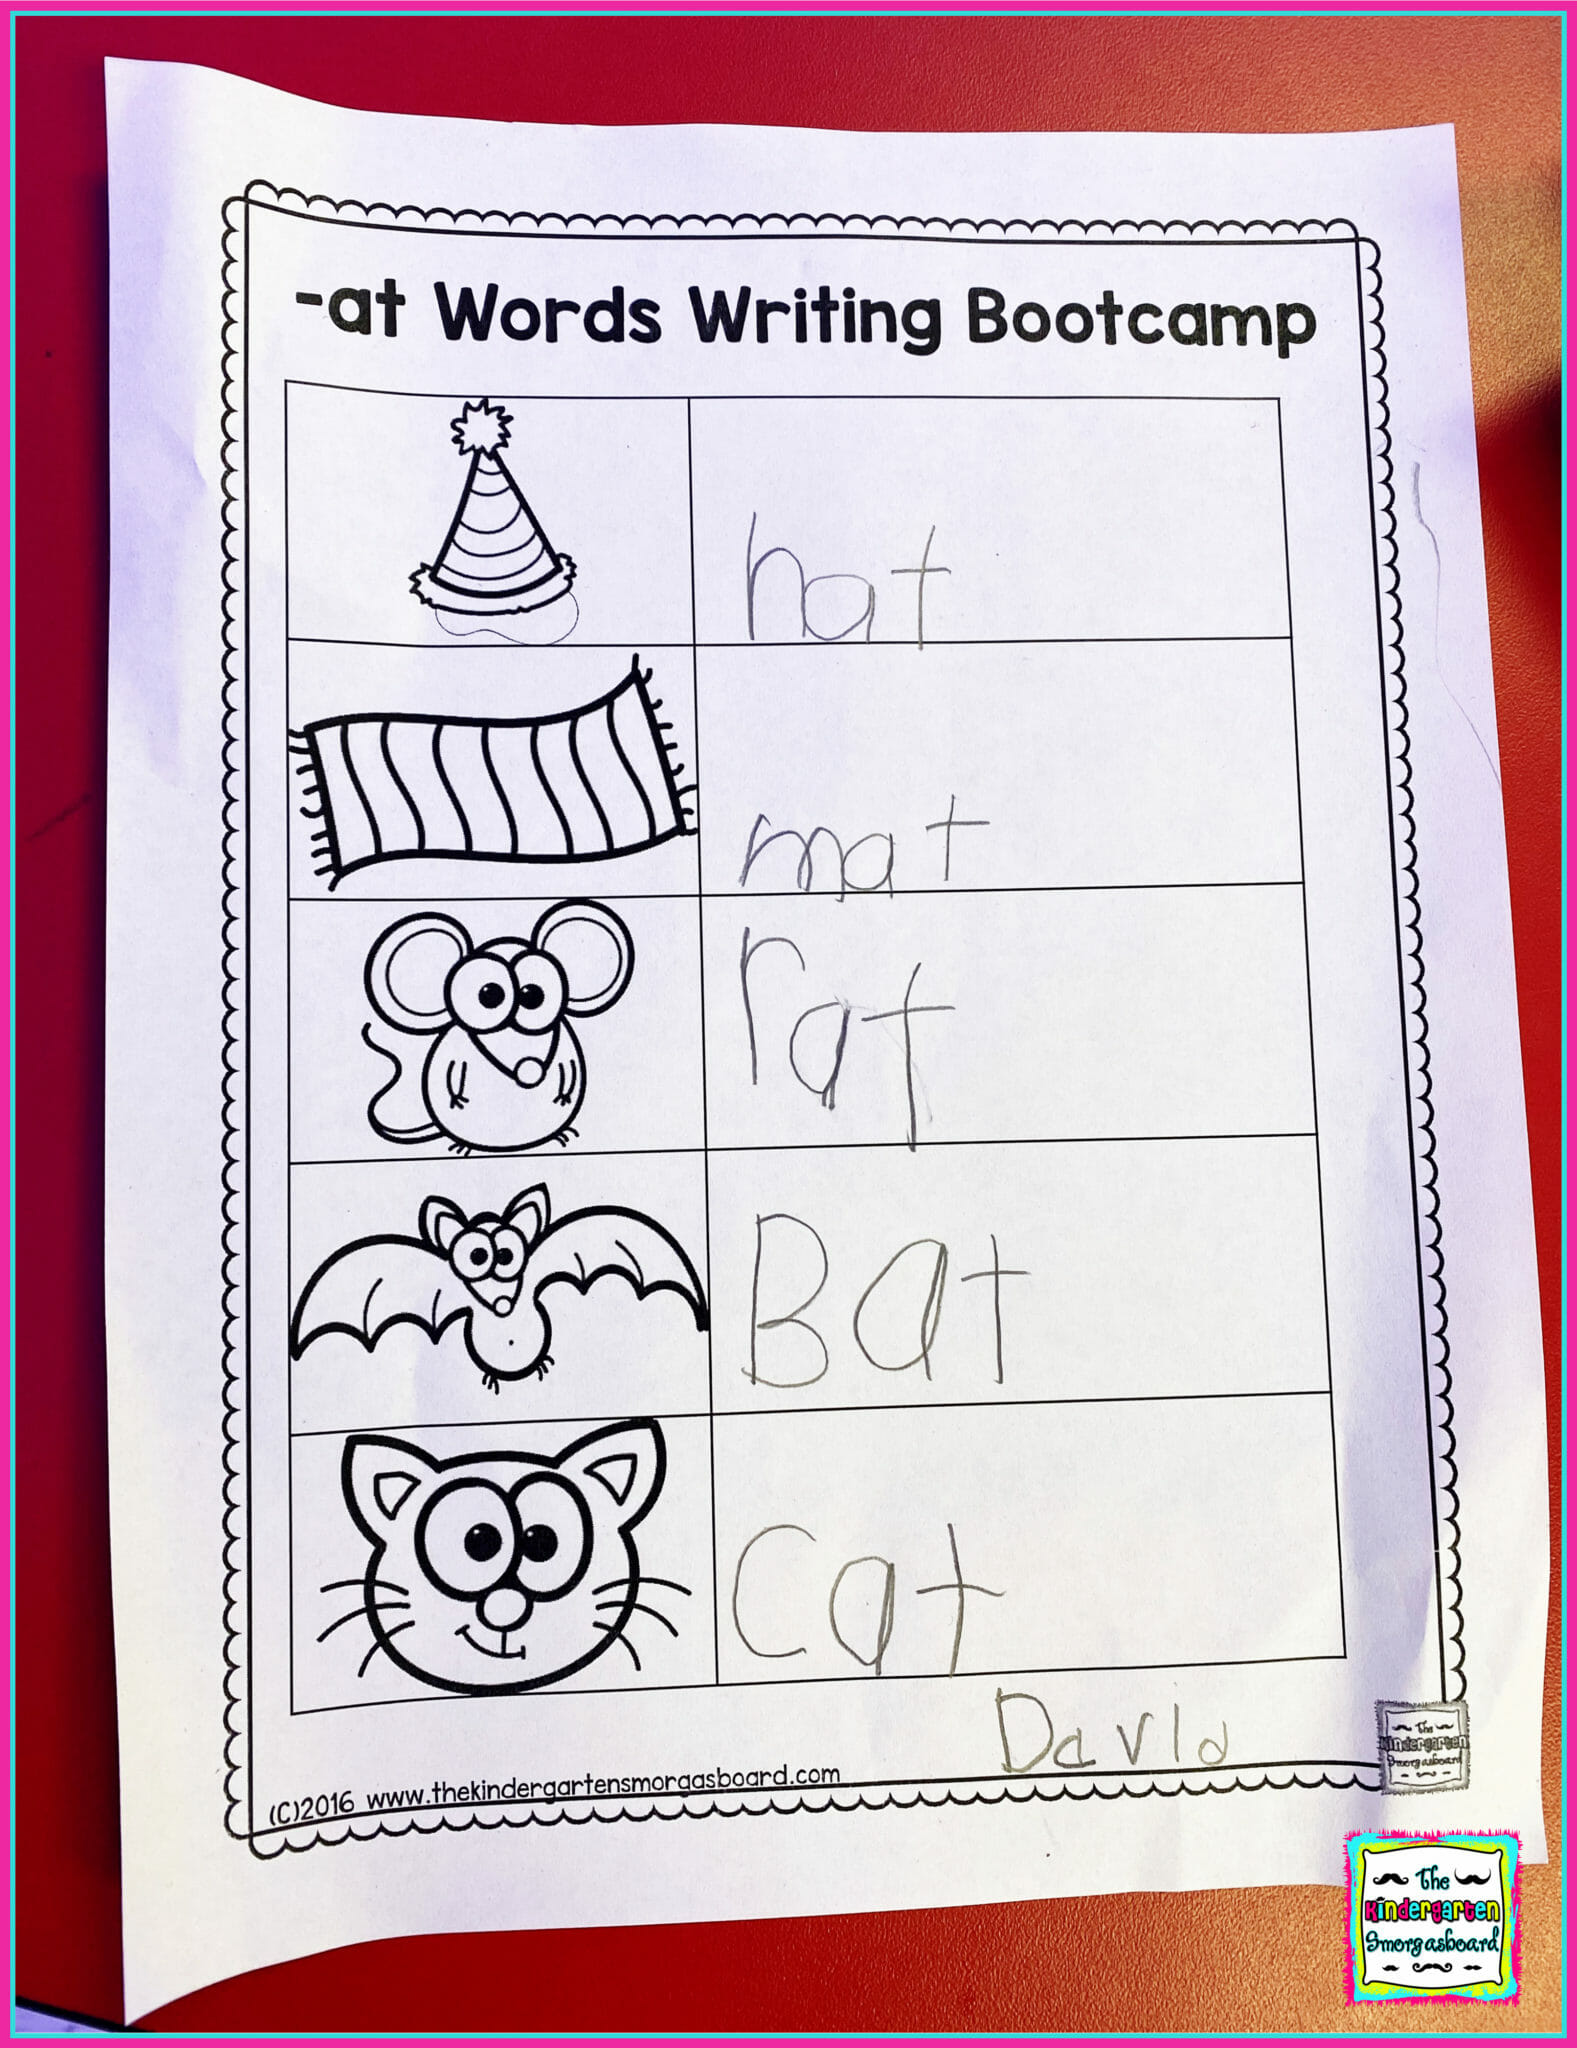 -at Words Writing Bootcamp
hat
mat
rat
Bat
Cat
David
(C)2016 www.thekindergartensmorgasboard.com
The
Kindergarten
Smorgasboard
The
Kindergarten
Smorgasboard